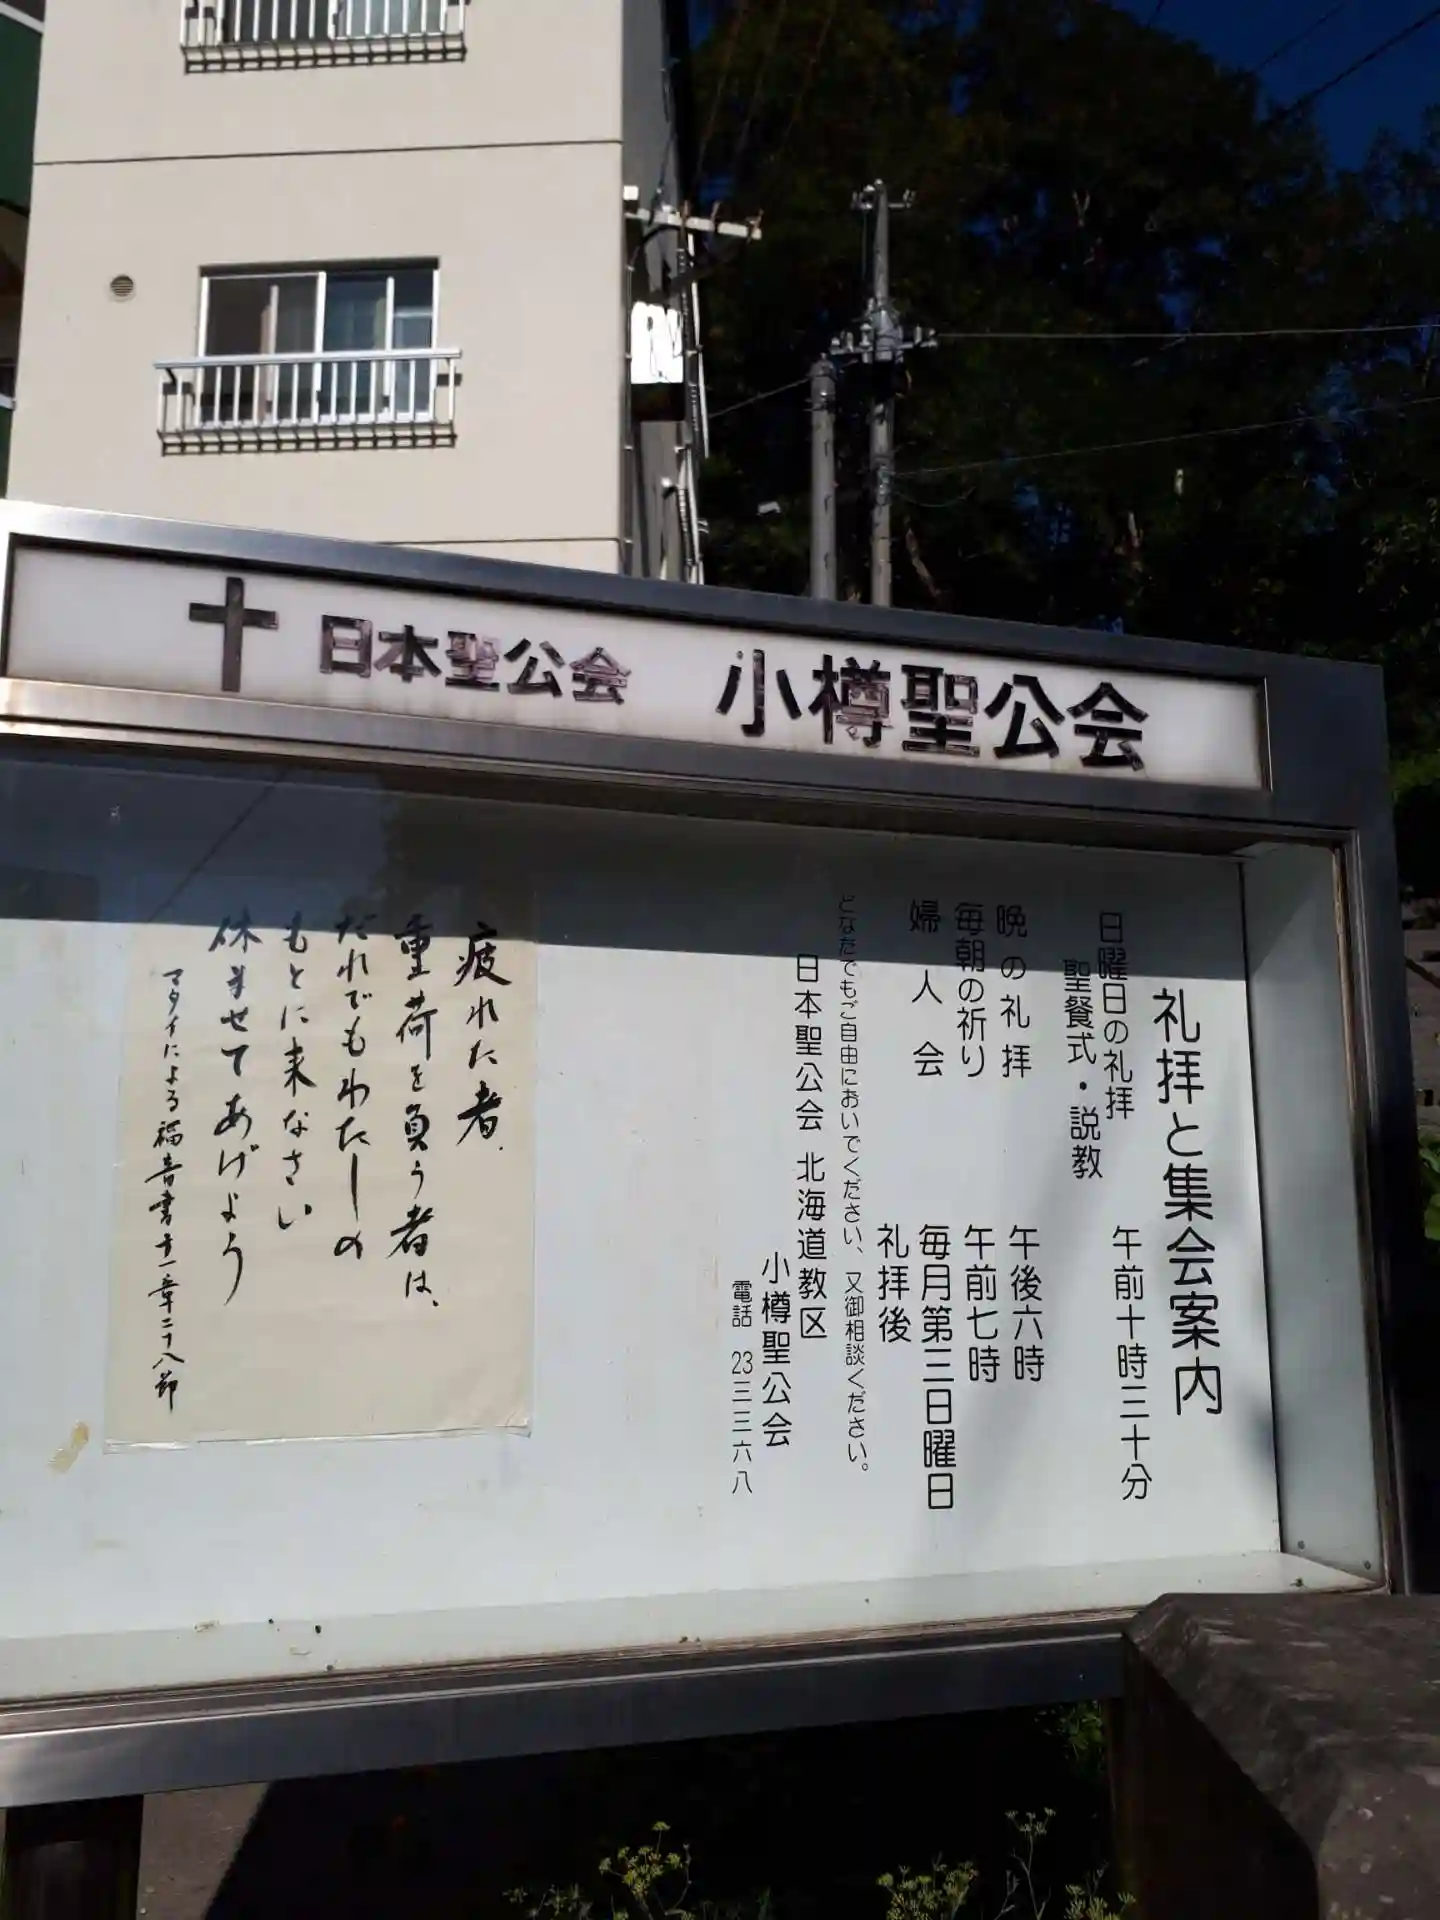 日本聖公会 小樽聖公会
礼拝と集会案内
日曜日の礼拝 午前十時三十分
聖餐式・説教
晩の礼拝 午後六時
毎朝の祈り 午前七時
婦人会 毎月第三日曜日
礼拝後
どなたでもご自由においでください、又御相談ください。
日本聖公会 北海道教区
小樽聖公会
電話 23三三六八
疲れた者、
重荷を負う者は、
だれでもわたしの
もとに来なさい
休ませてあげよう
マタイによる福音書十一章二十八節